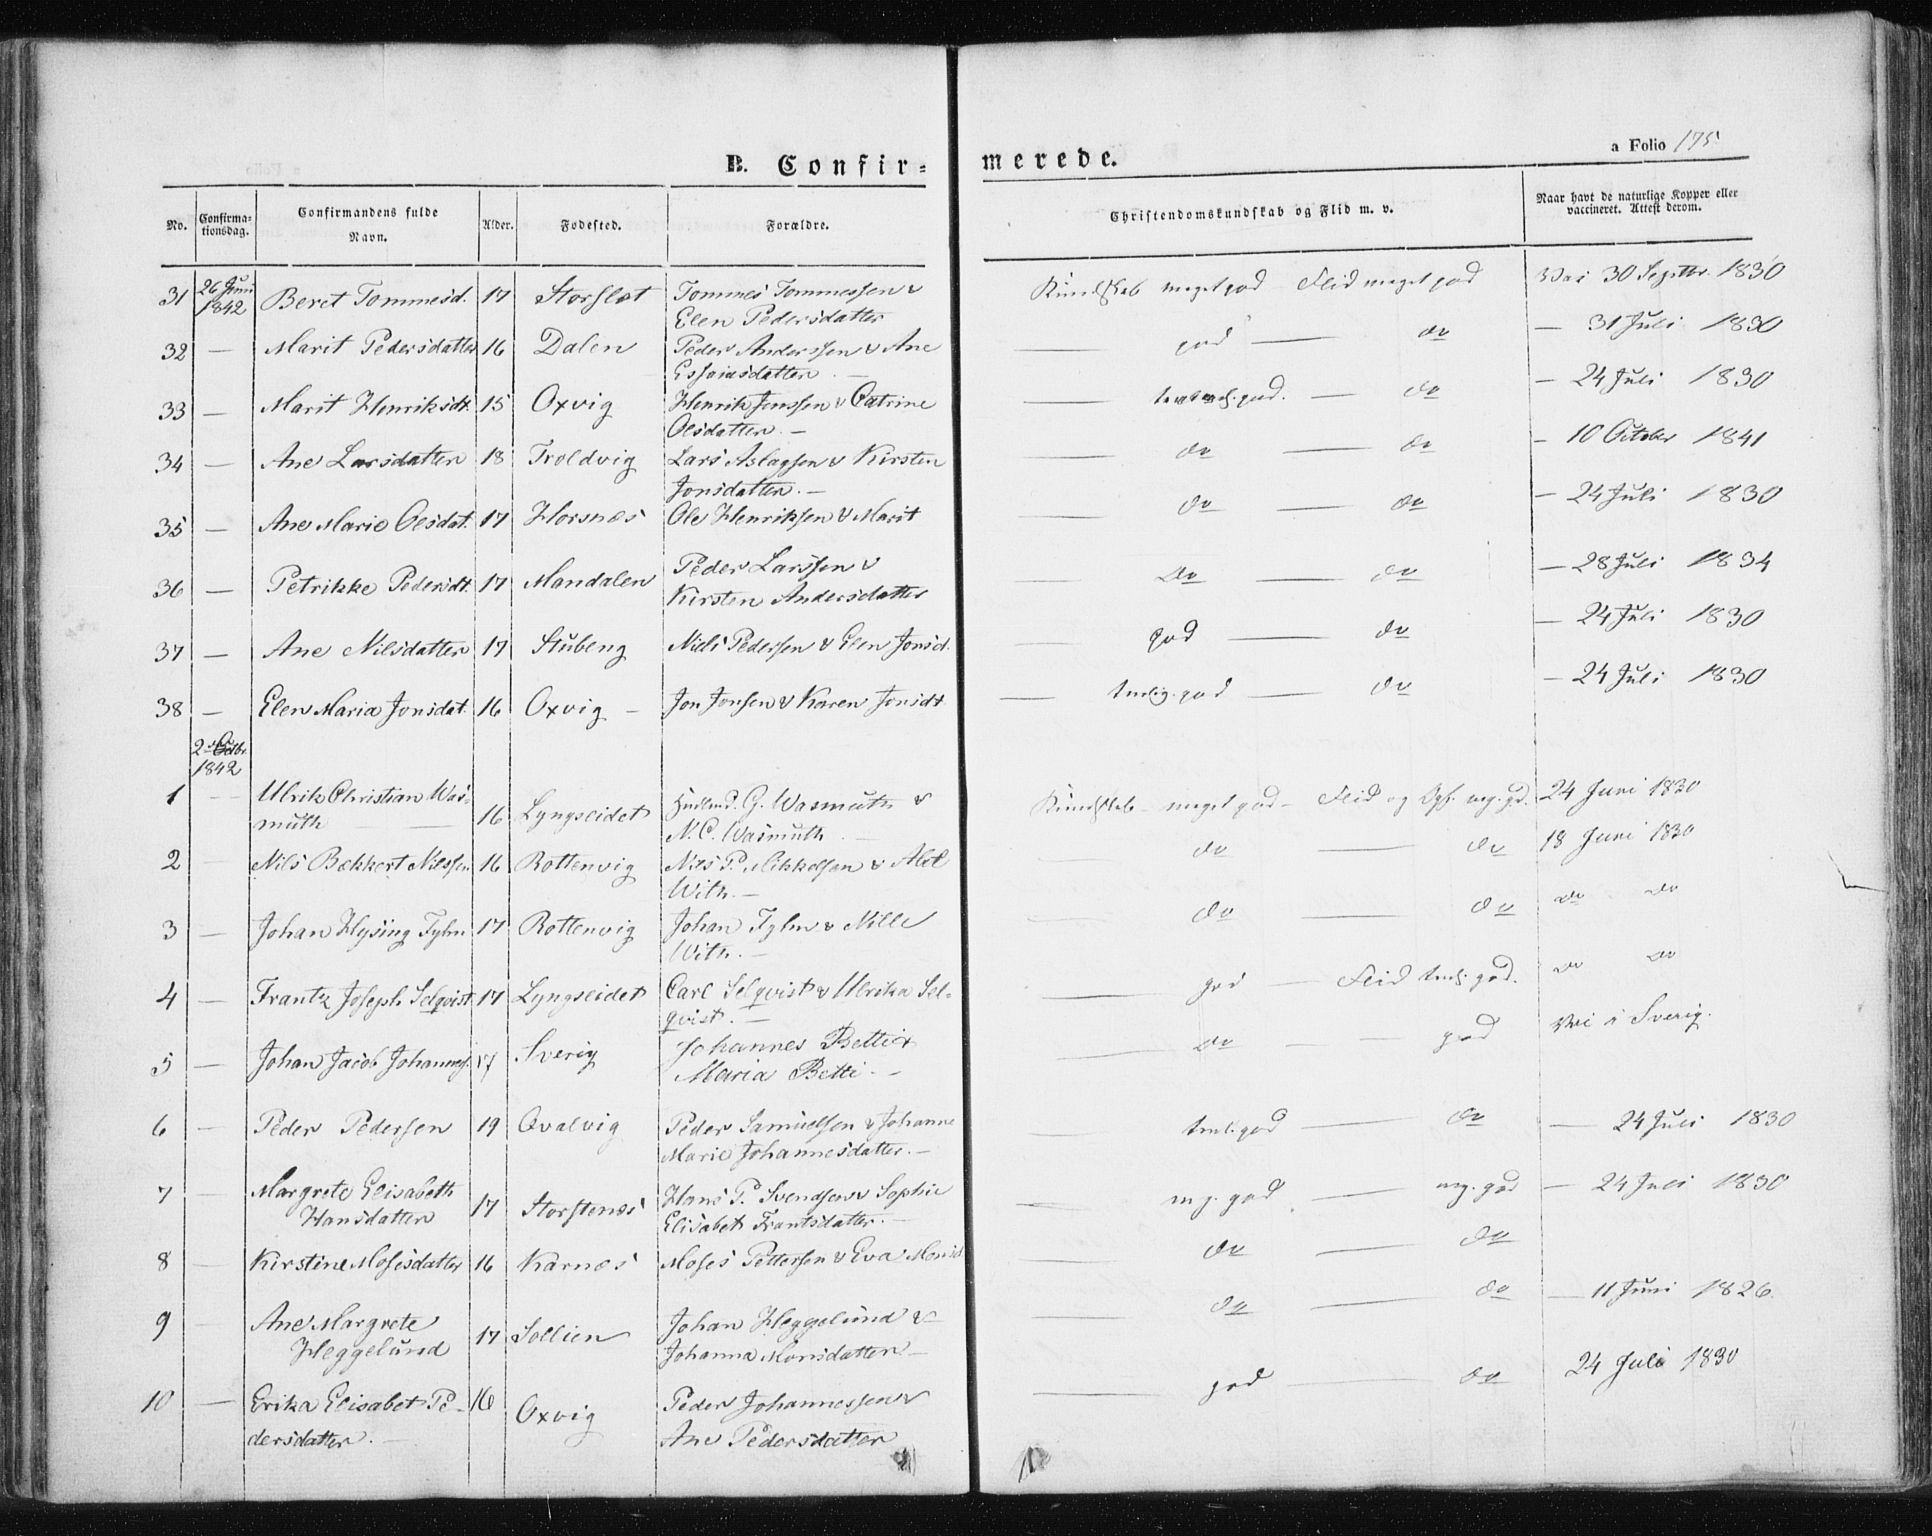 a Folio 175
B. Confir-merede.
No. Confirmationsdag. Confirmandens fulde Navn. Alder. Fødested. Forældre. Christendomskundskab og Flid m. v. Naar havt de naturlige Kopper eller vaccineret. Attest derom.
31 26 Juni 1842 Beret Tommesd. 17 Storslet Tommes Tommessen & Kundskab meget god Flid meget god Vac 30 Septbr. 1830
Elen Pedersdatter
32 — Marit Pedersdatter 16 Dalen Peder Anderssen & Ane — god — do — 31 Juli 1830
Essaiasdatter. —
33 — Marit Henriksdt. 15 Oxvig Henrik Jenssen & Catrine — god. — do — 24 Juli 1830
Olsdatter. —
34 — Ane Larsdatter 18 Troldvig Lars Aslagsen & Kirsten — do — do — 10 October 1841
Jonsdatter. —
35 — Ane Marie Olsdat. 17 Horsnæs Ole Henriksen & Marit — do — do — 24 Juli 1830
36 — Petrikke Pedersdt. 17 Mandalen Peder Larssen & — do — do — 28 Juli 1834
Kirsten Andersdatter
37 — Ane Nilsdatter 17 Stubeng Niels Pedersen & Elen Jonsd. — god — do — 24 Juli 1830
38 — Elen Maria Jonsdat. 16 Oxvig — Jon Jonsen & Karen Jonsdt — temlig. god — do — 24 Juli 1830
2 Octbr
1842
1 — Ulrik Christian Was- 16 Lyngseidet G. Wasmuth & Kundskab — meget god — Flid og Opf. meg. gd. 24 Juni 1830
muth — N. C. Wasmuth. —
2 — Nils Bekkert Nilssen 16 Rottenvig Nils P. Mikkelsen & Alet do — do 18 Juni 1830
With. —
3 — Johan Hysing Fyhn 17 Rottenvig Johan Fyhn & Nille — do — do do do
With. —
4 — Frantz Joseph Selqvist 17 Lyngseidet Carl Selqvist & Ulrika Sel- — god — Flid teml. god. do do
qvist. —
5 — Johan Jacob Johannes. 17 Sverig Johannes Betti & — do — god Vac i Sverig.
Maria Betti. —
6 — Peder Pedersen 19 Qvalvig Peder Samuelsen & Johanne — teml. god — do — 24 Juli 1830
Marie Johannesdatter. —
7 — Margrete Elisabeth 17 Storstenes Hans P. Svendsen & Sophie — mg. god — meg. god — 24 Juli 1830
Hansdatter Elisabet Frantsdatter. —
8 — Kirstine Mosesdatter 16 Karnæs Moses Pettersen & Eva Monsd — do — do
9 — Ane Margrete 17 Sollien Johan Heggelund & — do — do — 11 Juni 1826.
Heggelund Johanna Monsdatter —
10 — Erika Elisabet Pe- 16 Oxvig Peder Johannessen & — god — do 24 Juli 1830
dersdatter. — Ane Pedersdatter